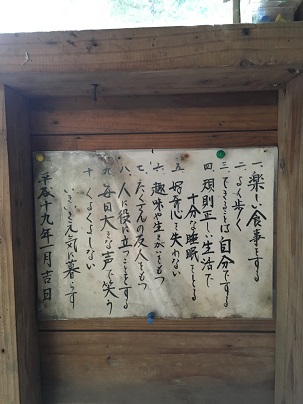 一、楽しい食事をする
二、よく歩く
三、できることは自分でする
四、規則正しい生活で
十分な睡眠をとる
五、好奇心を失わない
六、趣味や生きがいをもつ
七、たくさんの友人をもつ
八、人に役に立つことをする
九、毎日大きな声で笑う
十、くよくよしない
いきいき元気に暮らす
平成十九年一月吉日